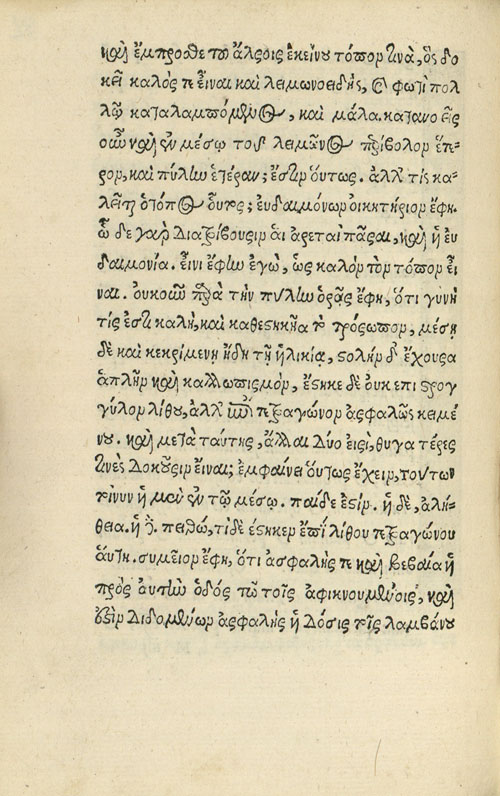 καὶ ἔμπροσθε τοῦ ἄλσους ἐκείνου τόπον τινὰ, ὃς δο
κεῖ καλός τε εἶναι καὶ λειμωνοειδὴς, καὶ φωτὶ πολ
λῷ καταλαμπόμενος, καὶ μάλα. κατανοεῖς
οὖν καὶ ἐν μέσῳ τοῦ λειμῶνος περίβολον ἕτε
ρον, καὶ πύλην ἑτέραν; ἔστιν ὅυτως. ἀλλὰ τίς κα
λεῖται ὁ τόπος ὅυτος; ἐυδαιμόνων οἰκητήριον ἔφη.
ὧδε γὰρ διατρίβουσιν ἁι ἀρεταὶ πᾶσαι, καὶ ἡ ἐυ
δαιμονία. εἶεν ἔφην ἐγὼ, ὡς καλὸν τὸν τόπον εἶ
ναι. ουκοῦν παρὰ τὴν πύλην ὁρᾷς ἔφη, ὅτι γυνή
τίς ἐστι καλὴ, καὶ καθεστηκῆα τὸ πρόσωπον, μέσῃ
δὲ καὶ κεκριμένη ἤδη τῇ ἡλικίᾳ, στολὴν δ' ἔχουσα
ἁπλῆν καὶ καλλωπισμὸν, ἕστηκε δὲ ὀυκ επι στρογ
γύλου λίθου, ἀλλ' ἐπὶ τετραγώνου ἀσφαλῶς κειμέ
νου. καὶ μετὰ ταύτης, ἄλλαι δύο εἰσὶ, θυγατέρες
τινὲς δοκοῦσιν εἶναι; ἐμφαίνει ὅυτως ἔχειν, τούτων
τοίνυν ἡ μὲν ἐν τῷ μέσῳ. παιδεία ἐστίν. ἡ δὲ, ἀλή-
θεια. ἡ δὲ. πειθώ, τί δὲ ἕστηκεν ἐπὶ λίθου τετραγώνου
ἁύτη. σημεῖον ἔφη, ὅτι ἀσφαλής τε καὶ βεβαία ἡ
πρὸς αυτὴν ὁδός ἐστι τοῖς ἀφικνουμένοις, καὶ
τῶν διδομένων ἀσφαλὴς ἡ δόσις τοῖς λαμβάνου